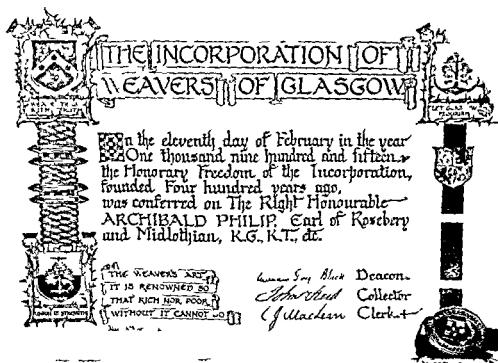 THE INCORPORATION OF
WEAVERS OF GLASGOW
WEAVE TRUTH
WITH TRUTH
LET GLAS
FLOURISH
On the eleventh day of February in the year
One thousand nine hundred and fifteen
the Honorary Freedom of the Incorporation,
founded Four hundred years ago,
was conferred on The Right Honourable
ARCHIBALD PHILIP, Earl of Rosebery
and Midlothian, K.G., K.T., etc.
THE WEAVER'S ART
IT IS RENOWNED SO
THAT RICH NOR POOR
WITHOUT IT CANNOT GO
Deacon
John Reid Collector
Clerk
UNION IS STRENGTH